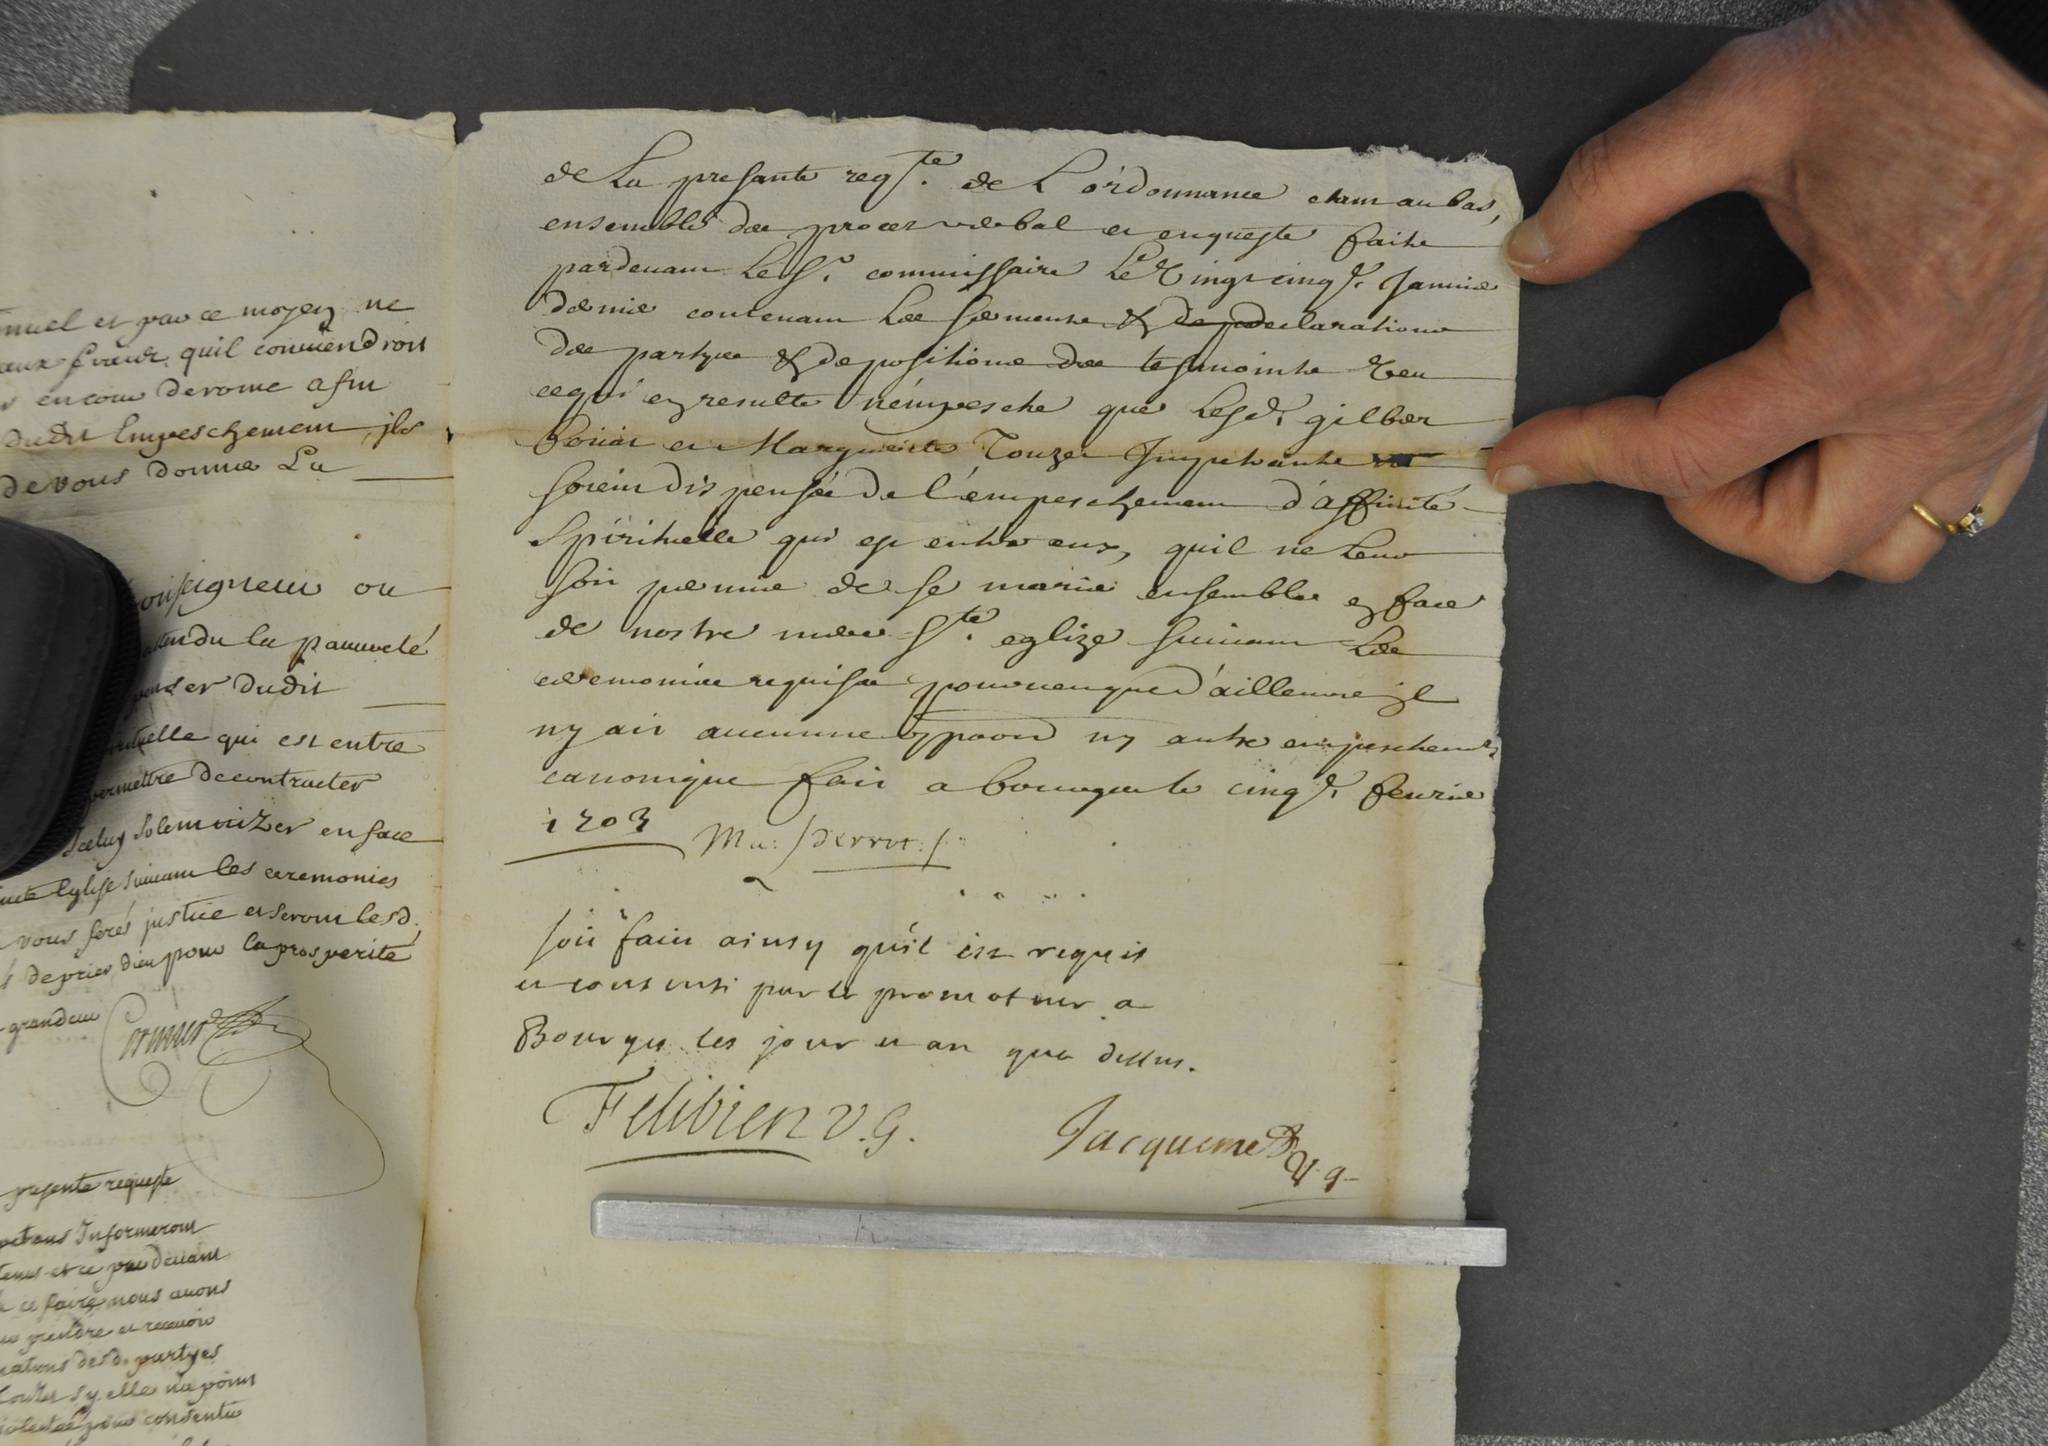 nuel et par ce moyen ne
aux fraix quil conviendroit
en cour de rome afin
dudit Empeschement, jls
de vous donner La
onseigneur ou
attendu la pauvreté
penser dudit
rituelle qui est entre
permettre de contracter
Jceluy Solemnizer en face
Eglise suivant les ceremonies
vous ferés justice et seront lesd.
de prier dieu pour la prosperité
grandeur
presente requeste
Informeront
et ce par devant
ce faire nous avons
prendre et recevoir
desd. partyes
sy elle na point
pour consentir
de La presante reqte. de L'ordonnance estant au bas,
ensemble des proces verbal et enqueste faite
pardevant Le Sr. commissaire Le Vingt cinqe. Janvier
dernier contenant Les serments & declarations
des partyes & depositions des tesmoints Veu
ce qui en resulte n'empesche que Lesd. gilbert
et Marguerite Touzet Impetrants
soient dispensés de l'empeschement d'affinité
Spirituelle qui est entre eux, quil ne Leur
soit permis de se marier ensembles en face
de nostre mere Ste. eglize suivant Les
ceremonies requises pourveu que d'ailleurs jl
ny ait aucune oppoon ny autre empeschement
canonique fait a bourges le cinqe. fevrier
1703 Perrot
soit fait ainsy qu'il est requis
et consenti par le promoteur a
Bourges les jour et an que dessus.
Felibien V.G.
Jacquemet
V.g.